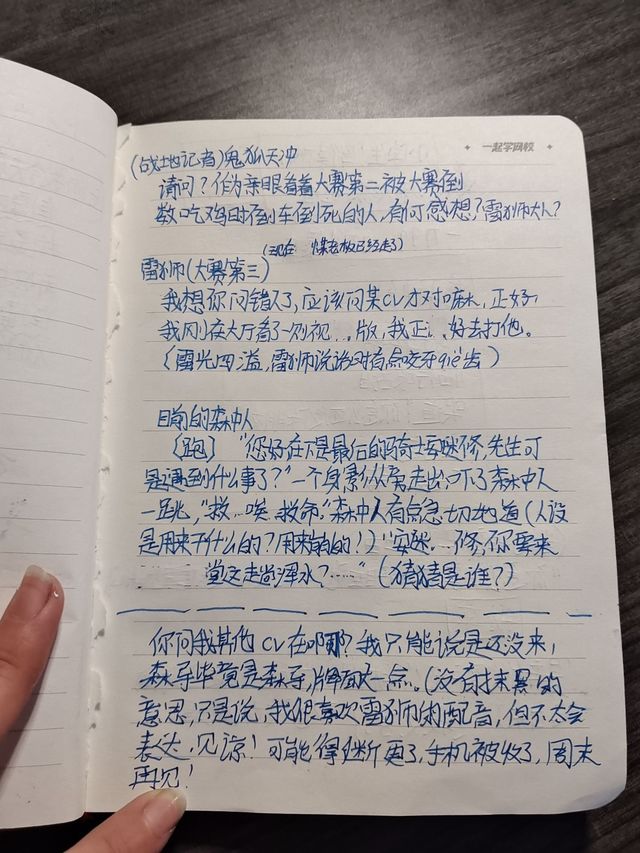 一起学网校
(战地记者)鬼狐天冲
请问?作为亲眼看着大赛第二被大赛倒
数吃鸡时倒车倒死的人,有何感想?雷狮大人?
(现在 煤老板已经走了)
雷狮(大赛第三)
我想你问错了,应该问某CV才对嘛,正好
我刚在大厅看了一列视...版,我正... 好去打他。
(雷光四溢,雷狮说话时有点咬牙切齿)
目前的森中人
(跑) "您好在下是最后的骑士安迷修,先生可
是遇到什么事了?"一个身影从旁走出,吓了森中人
一跳,"救...唉 救命."森中人有点急切地道(人设
是用来干什么的?用来崩的!)"安迷...修,你要来
堂这走尚浑水?......" (猜猜是谁?)
你问我其他CV在哪?我只能说是还没来,
森导毕竟是森导,牌面大一点。(没有抹黑的
意思,只是说,我很喜欢雷狮的配音,但不太会
表达,见谅!可能得断更了,手机被收了,周末
再见!